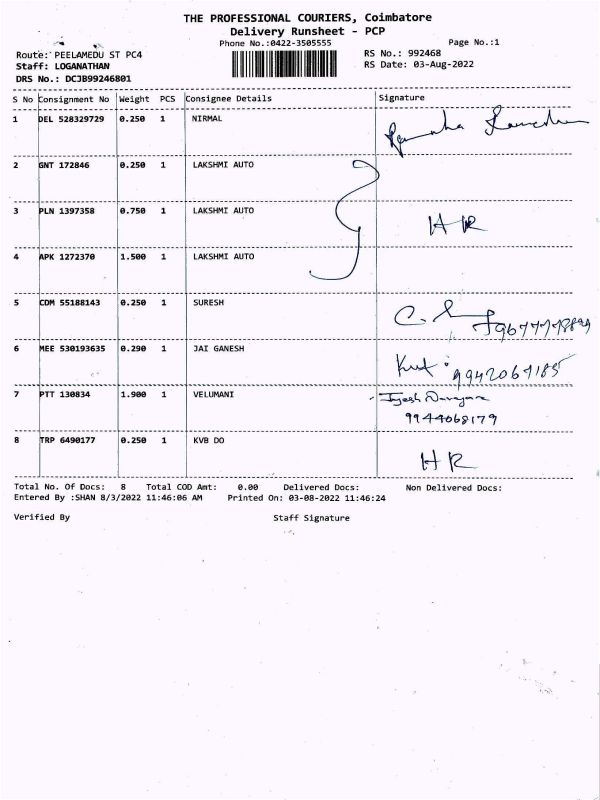 THE PROFESSIONAL COURIERS, Coimbatore
Delivery Runsheet - PCP
Phone No.:0422-3505555
Page No.:1
Route: PEELAMEDU ST PC4
RS No.: 992468
Staff: LOGANATHAN
RS Date: 03-Aug-2022
DRS No.: DCJB99246801
S No Consignment No Weight PCS Consignee Details Signature
1 DEL 528329729 0.250 1 NIRMAL
2 GNT 172846 0.250 1 LAKSHMI AUTO
3 PLN 1397358 0.750 1 LAKSHMI AUTO HR
4 APK 1272370 1.500 1 LAKSHMI AUTO
5 CDM 55188143 0.250 1 SURESH
6 MEE 530193635 0.290 1 JAI GANESH
7 PTT 130834 1.900 1 VELUMANI
9944068179
8 TRP 6490177 0.250 1 KVB DO HR
Total No. Of Docs: 8 Total COD Amt: 0.00 Delivered Docs: Non Delivered Docs:
Entered By :SHAN 8/3/2022 11:46:06 AM Printed On: 03-08-2022 11:46:24
Verified By Staff Signature